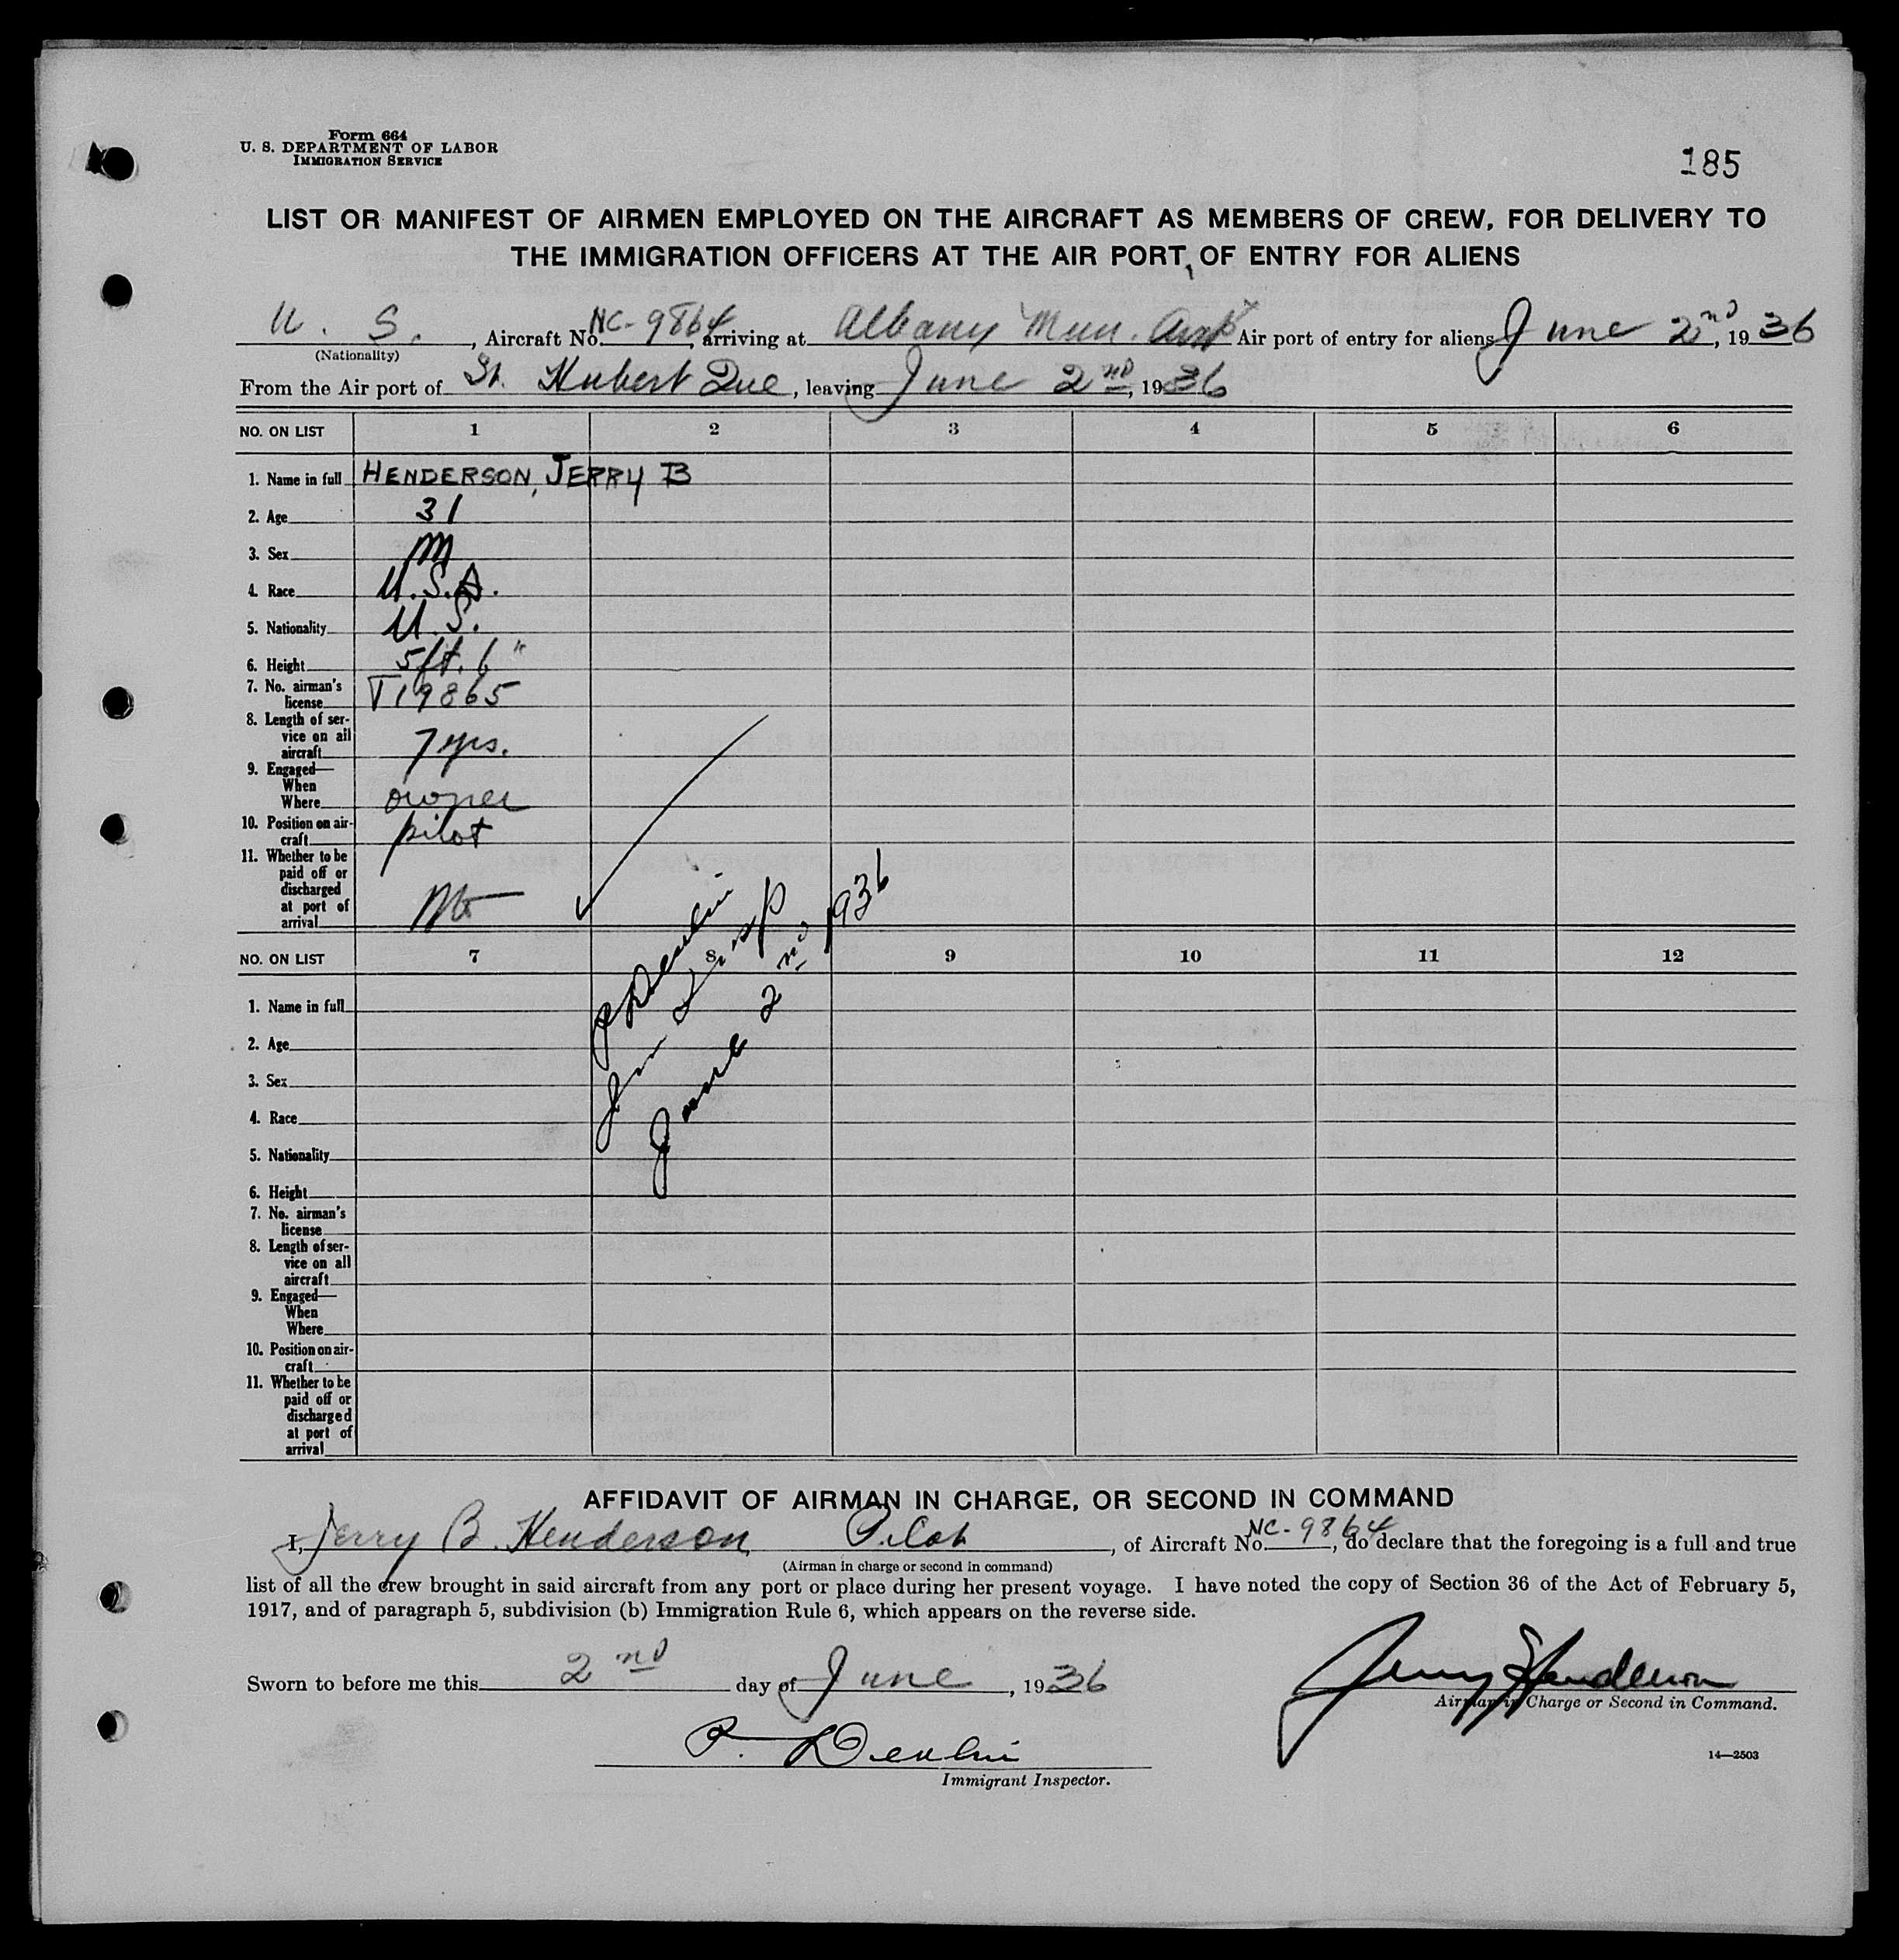 Form 664
U. S. DEPARTMENT OF LABOR
IMMIGRATION SERVICE
185
LIST OR MANIFEST OF AIRMEN EMPLOYED ON THE AIRCRAFT AS MEMBERS OF CREW, FOR DELIVERY TO
THE IMMIGRATION OFFICERS AT THE AIR PORT, OF ENTRY FOR ALIENS
U. S., Aircraft No. NC-9864, arriving at Albany Mun. Airpt Air port of entry for aliens June 2nd, 1936
(Nationality)
From the Air port of St. Hubert Que, leaving June 2nd, 1936
NO. ON LIST 1 2 3 4 5 6
1. Name in full HENDERSON, JERRY B
2. Age 31
3. Sex M
4. Race U.S.A.
5. Nationality U.S.
6. Height 5ft. 6"
7. No. airman's
license T19865
8. Length of ser-
vice on all
aircraft 7 yrs.
9. Engaged—
When
Where owner
10. Position on air-
craft pilot
11. Whether to be
paid off or
discharged
at port of
arrival No
P Devlin
Imm Insp
June 2nd 1936
NO. ON LIST 7 8 9 10 11 12
1. Name in full
2. Age
3. Sex
4. Race
5. Nationality
6. Height
7. No. airman's
license
8. Length of ser-
vice on all
aircraft
9. Engaged—
When
Where
10. Position on air-
craft
11. Whether to be
paid off or
discharged
at port of
arrival
AFFIDAVIT OF AIRMAN IN CHARGE, OR SECOND IN COMMAND
I, Jerry B. Henderson, Pilot, of Aircraft No. NC-9864, do declare that the foregoing is a full and true
(Airman in charge or second in command)
list of all the crew brought in said aircraft from any port or place during her present voyage. I have noted the copy of Section 36 of the Act of February 5,
1917, and of paragraph 5, subdivision (b) Immigration Rule 6, which appears on the reverse side.
Sworn to before me this 2nd day of June, 1936
Jerry B Henderson
Airman in Charge or Second in Command.
P. Devlin
Immigrant Inspector.
14—2503